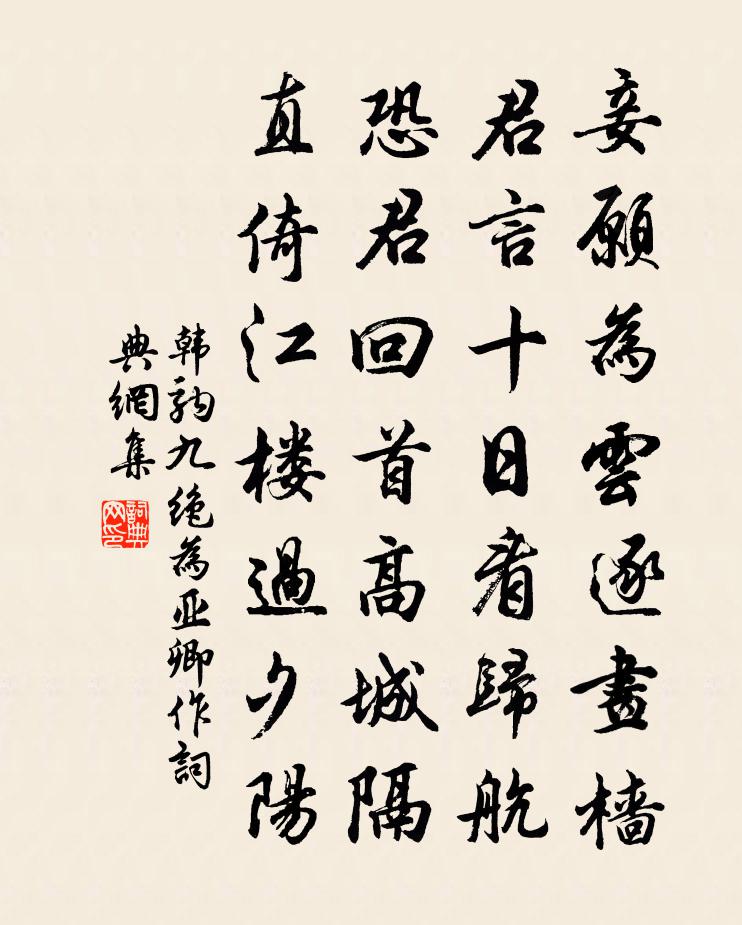 妾願為雲逐畫檣
君言十日看歸航
恐君回首高城隔
直倚江楼過夕陽
韩駒九绝為亚卿作詞
典網集
詞典网印